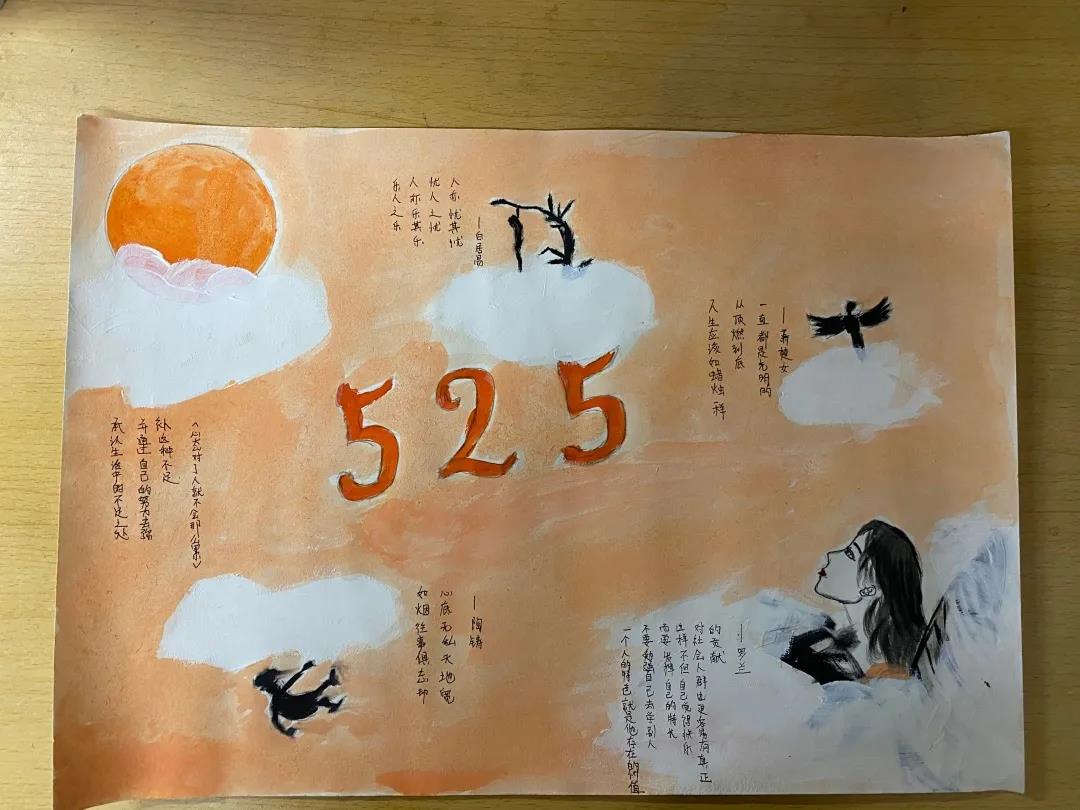 乐人之乐
人亦乐其乐
忧人之忧
人亦忧其忧
—白居易
人生应该如蜡烛一样
从顶燃到底
一直都是光明的
—萧楚女
525
承认生活中的不足之处
并通过自己的努力去弥
补这种不足
《心态对了人就不会那么累》
如烟往事俱忘却
心底无私天地宽
—陶铸
一个人的特色就是他存在的价值
不要勉强自己去学别人
而要发挥自己的特长
这样不但自己觉得快乐
对社会人群也更容易有真正
的贡献
—罗兰